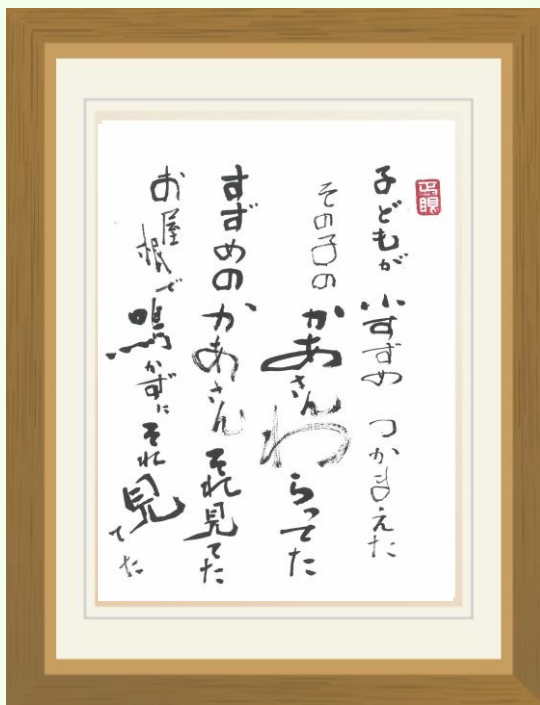 子どもが 小すずめ つかまえた
その子の かあさん わらってた
すずめの かあさん それ見てた
お屋根で鳴かずに それ見てた